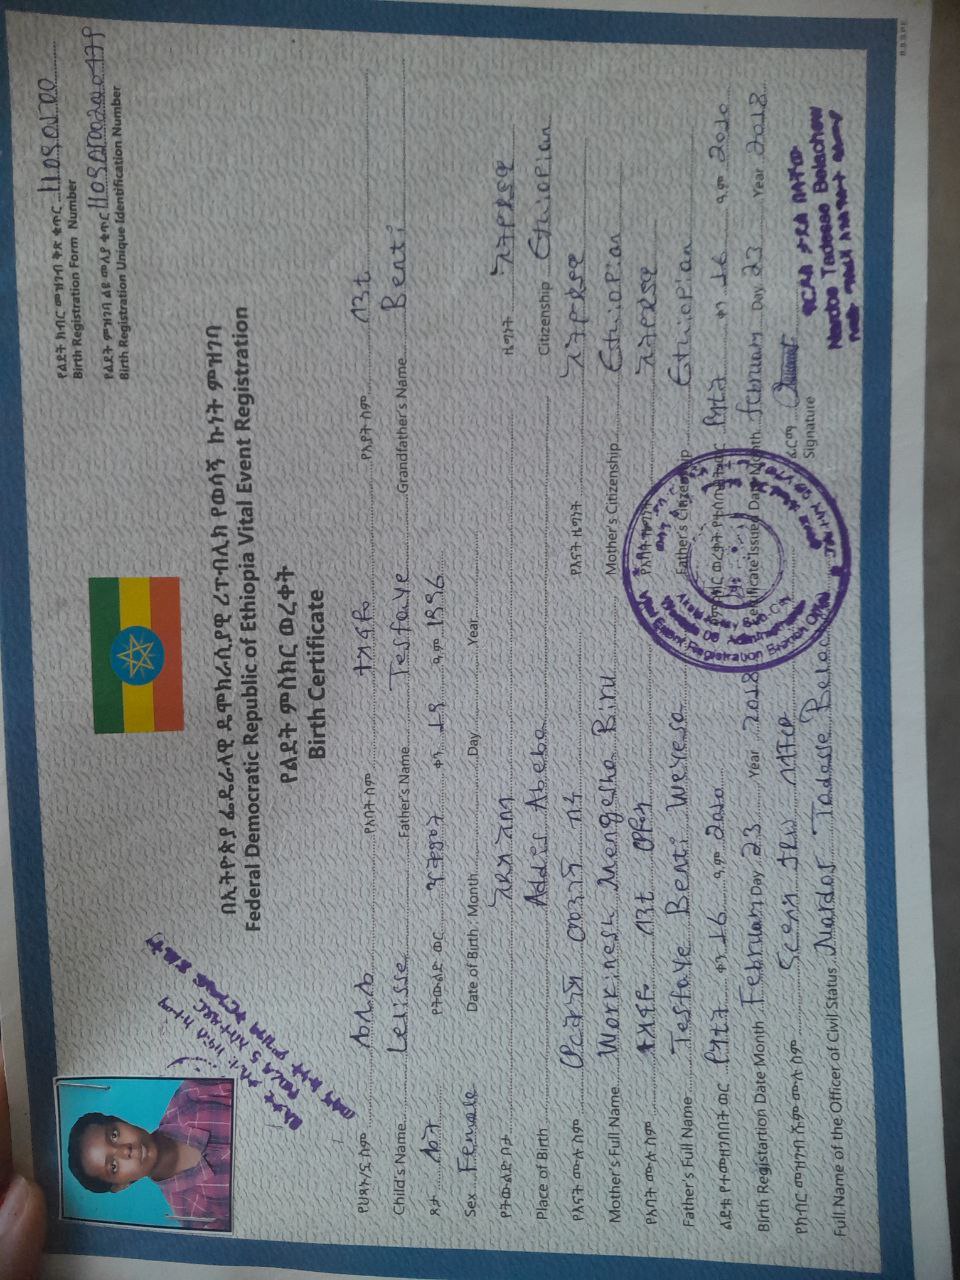 የልደት ክብር መዝገብ ቅጽ ቁጥር
Birth Registration Form Number
የልደት ምዝገባ ልዩ መለያ ቁጥር
Birth Registration Unique Identification Number
በኢትዮጵያ ፌዴራላዊ ዲሞክራሲያዊ ሪፐብሊክ የወሳኝ ኩነት ምዝገባ
Federal Democratic Republic of Ethiopia Vital Event Registration
የልደት ምስክር ወረቀት
Birth Certificate
የህጻኑ/ኗ ስም ሌሊሴ የአባት ስም ተስፋዬ የአያት ስም በንቲ
Child's Name Lelisse Father's Name Tesfaye Grandfather's Name Benti
ጾታ ሴት የትውልድ ወር ጥቅምት ቀን ዓ.ም
Sex Female Date of Birth Month Day Year
የትውልድ ቦታ አዲስ አበባ ዜግነት ኢትዮጵያዊ
Place of Birth Addis Abeba Citizenship Ethiopian
የእናት ሙሉ ስም ወርቅነሽ መንገሻ ብሩ የእናት ዜግነት ኢትዮጵያዊ
Mother's Full Name Workinesh Mengesha Biru Mother's Citizenship Ethiopian
የአባት ሙሉ ስም ተስፋዬ በንቲ ወየሳ የአባት ዜግነት ኢትዮጵያዊ
Father's Full Name Tesfaye Benti Weyesa Father's Citizenship Ethiopian
ልደቱ የተመዘገበበት ወር የካቲት ቀን 16 ዓ.ም 2010 የምስክር ወረቀቱ የተሰጠበት ወር የካቲት ቀን 16 ዓ.ም 2010
Birth Registartion Date Month February Day 23 Year 2018 Certificate Issued Date Month february Day 23 Year 2018
የክብር መዝገብ ሹም ሙሉ ስም ናርዶስ ታደሰ በላቸው ፊርማ
Full Name of the Officer of Civil Status Nardos Tadesse Signature
ናርዶስ ታደሰ በላቸው
Nardos Tadesse Belachew
Vital Event Registration Branch Office